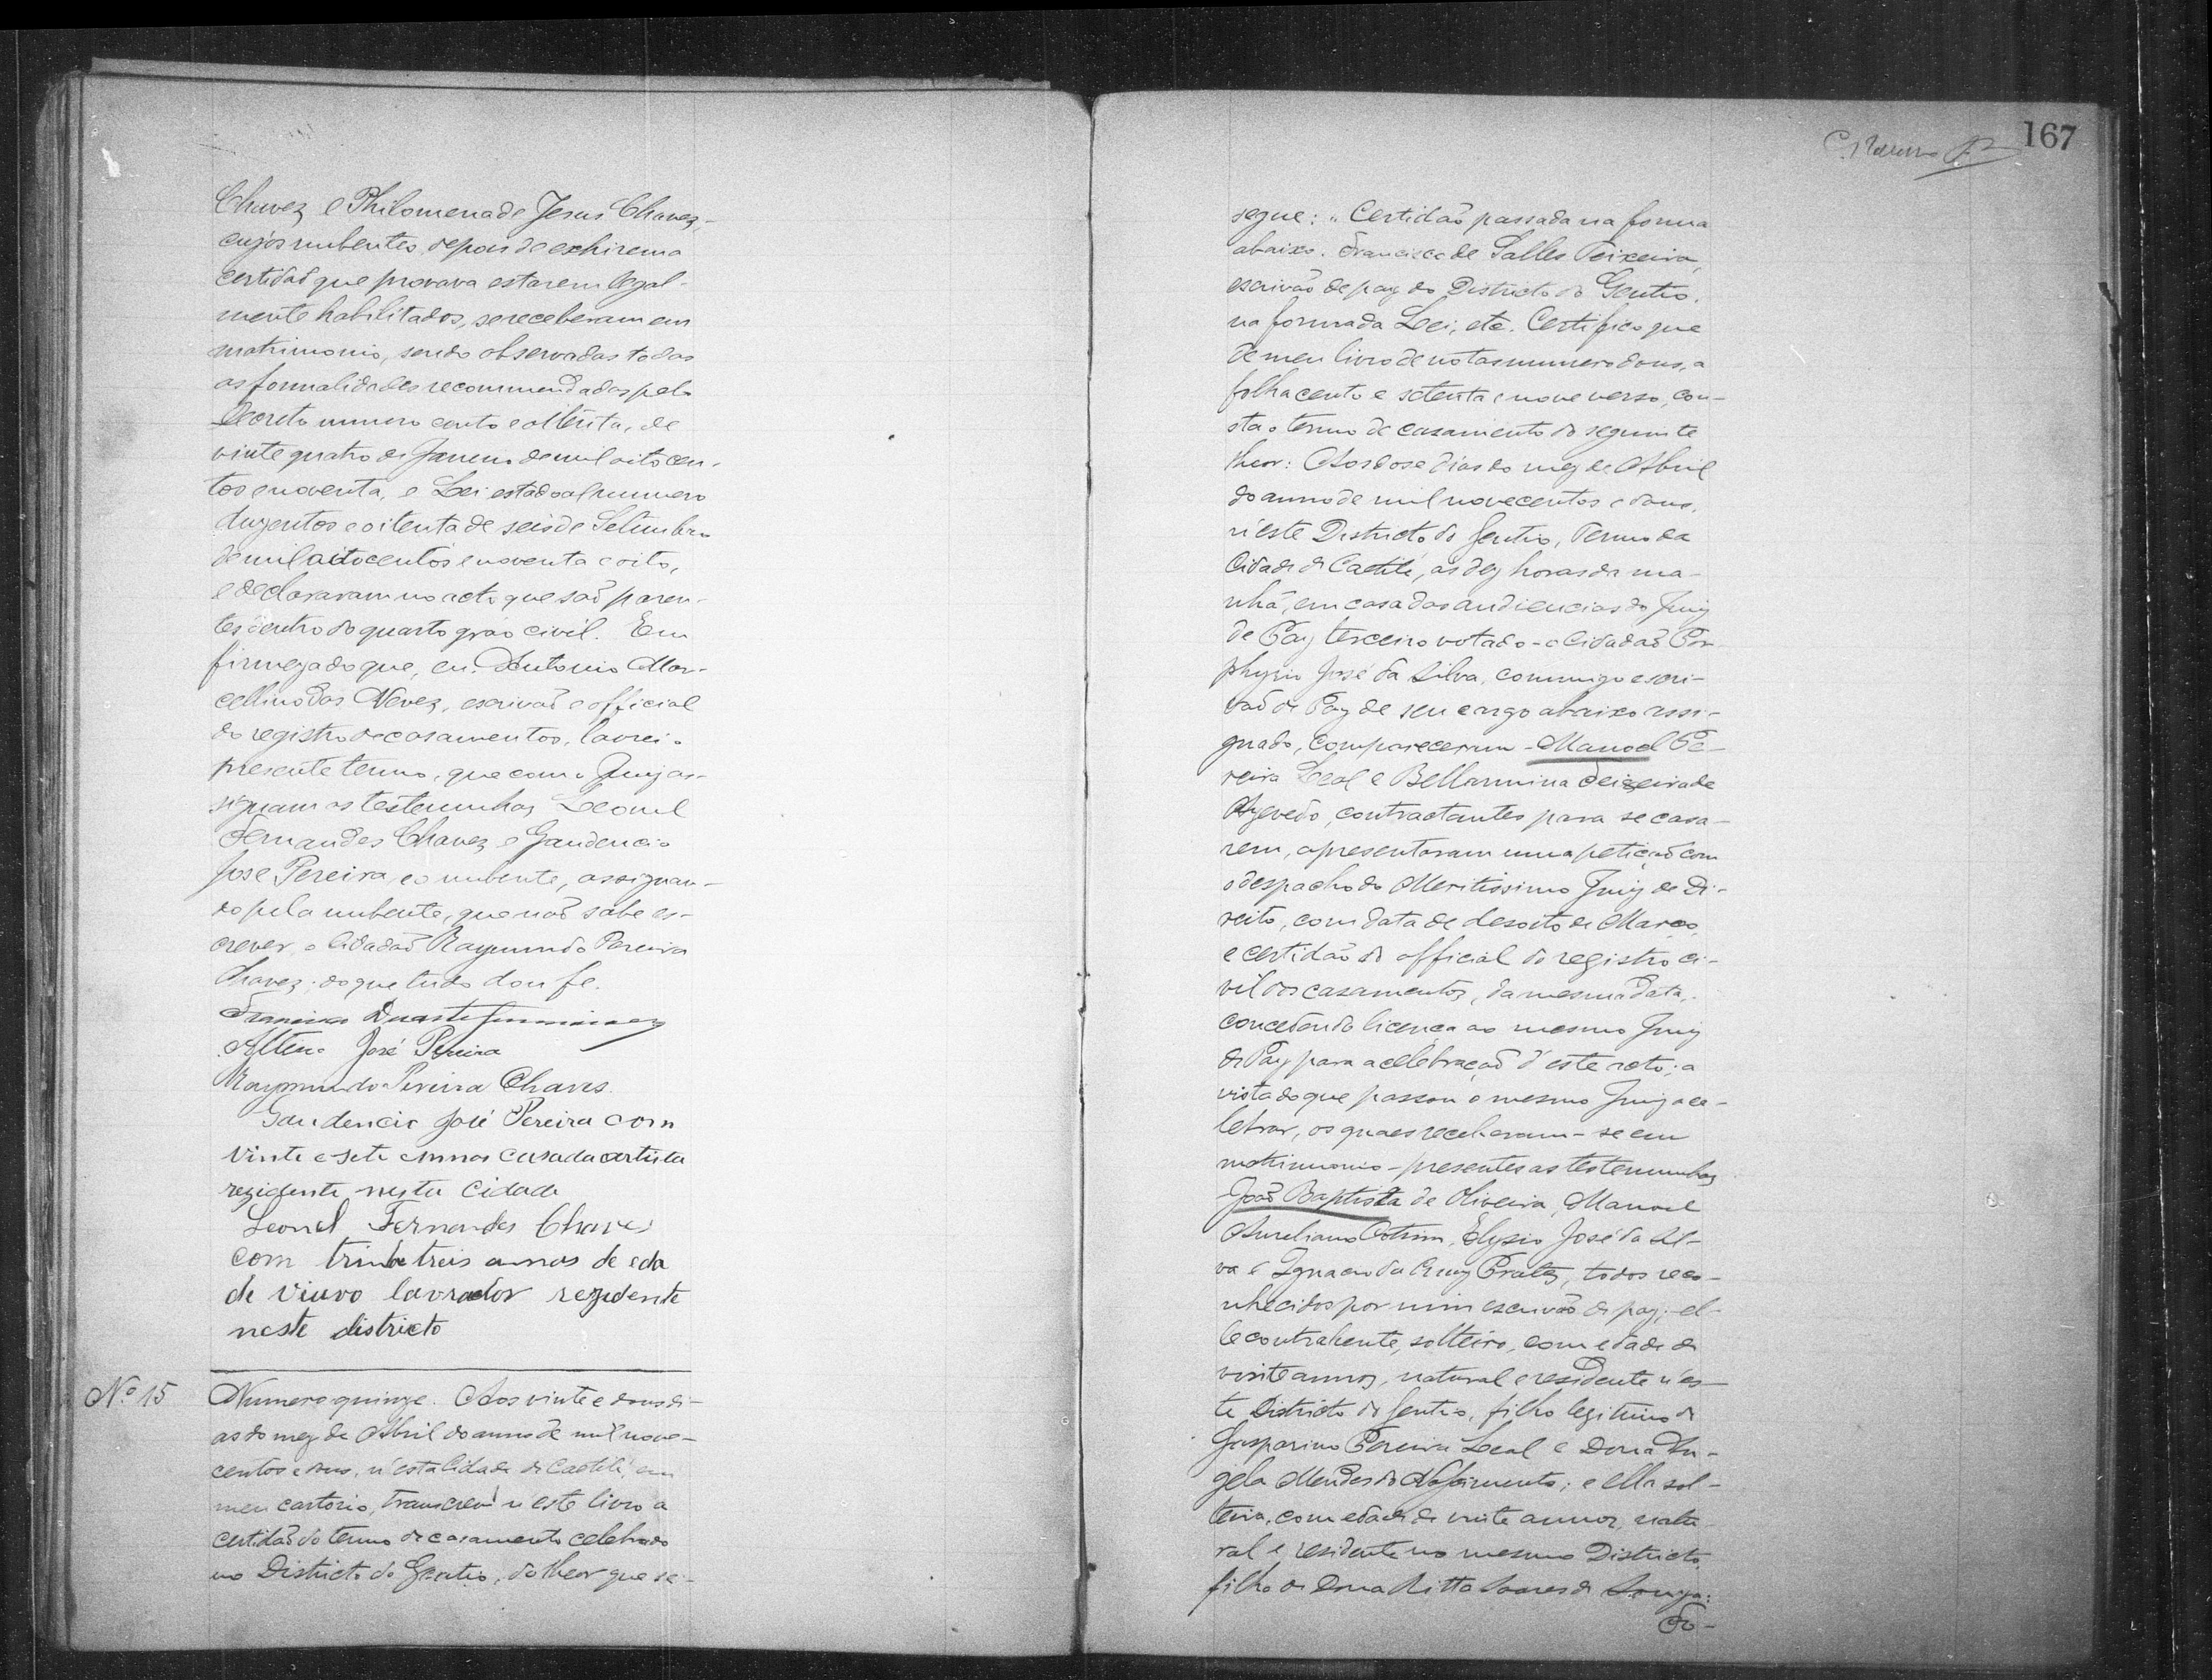 Chavez e Philomena de Jesus Chavez,
cujos nubentes, depois de exhirem a
certidaõ que provava estarem legal-
mente habilitados, se receberam em
matrimonio, sendo observadas todas
as formalidades recommendadas pelo
Decreto numero cento e oitenta, de
vinte quatro de Janeiro de mil oito cen-
tos e noventa, e Lei estadoal numero
duzentos e oitenta de seis de Setembro
de mil oitocentos e noventa e oito,
e declararam no acto que saõ paren-
tes dentro do quarto gráo civil. Em
firmeza do que, eu, Antonio Mar-
cellino das Neves, escrivaõ e official
do registro de casamentos, lavrei o
presente termo, que com o Juiz as-
signam as testemunhas Leonel
Fernandes Chavez e Gaudencio
José Pereira, e o nubente, assignan-
do pela nubente, que naõ sabe es-
crever, o Cidadaõ Raymundo Pereira
Chavez; do que tudo dou fé.
Francisco Duarte
José Pereira
Raymundo Pereira Chaves.
Gaudencio José Pereira com
vinte e sete annos casado artista
rezidente nesta Cidade
Leonel Fernandes Chaves
com trinta treis annos de eda
de viuvo lavrador rezidente
neste districto
Nº 15
Numero quinze. Aos vinte e dous di-
as do mez de Abril do anno de mil nove-
centos e dous, n'esta Cidade de Caetité, em
meu cartorio, transcrevi n'este livro a
certidaõ do termo de casamento celebrado
no Districto do Gentio, do theor que se-
167
segue: "Certidão passada na forma
abaixo. Francisco de Salles Teixeira,
escrivão de paz do Districto do Gentio,
na forma da Lei, etc. Certifico que
de meu livro de notas numero dous, a
folha cento e setenta e nove verso, con-
sta o termo de casamento do seguinte
theor: Aos dose dias do mez de Abril
do anno de mil novecentos e dous,
n'este Districto do Gentio, Termo da
Cidade de Caetité, as dez horas da ma-
nhã, em casa das audiencias do Juiz
de Paz terceiro votado - o Cidadaõ Por-
phyrio José da Silva, commigo escri-
vaõ de Paz de seu cargo abaixo assi-
gnado, compareceram - Manoel Pe-
reira Leal e Bellarmina Teixeira de
Azevedo, contractantes para se casa-
rem, apresentaram uma petiçaõ com
o despacho do Meritissimo Juiz de Di-
reito, com data de desoito de Março,
e certidão do official do registro ci-
vil dos casamentos, da mesma data,
concedendo licença ao mesmo Juiz
de Paz para a celebraçaõ d'este acto; a
vista do que passou o mesmo Juiz a ce-
lebrar, os quaes receberam-se em
matrimonio - presentes as testemunhas
Joaõ Baptista de Oliveira, Manoel
Aureliano Cotrim, Elysio José da Sil-
va e Ignacio da Cruz Prates, todos reco-
nhecidos por mim escrivaõ de paz; el-
le contrahente, solteiro, com edade de
vinte annos, natural e residente n'es-
te Districto do Gentio, filho legitimo de
Gasparino Pereira Leal e Dona An-
gela Mendes do Nascimento; e ella sol-
teira, com edade de vinte annos, natu
ral e residente no mesmo Districto,
filha de Dona Ritta Soares de Souza:
Fo-